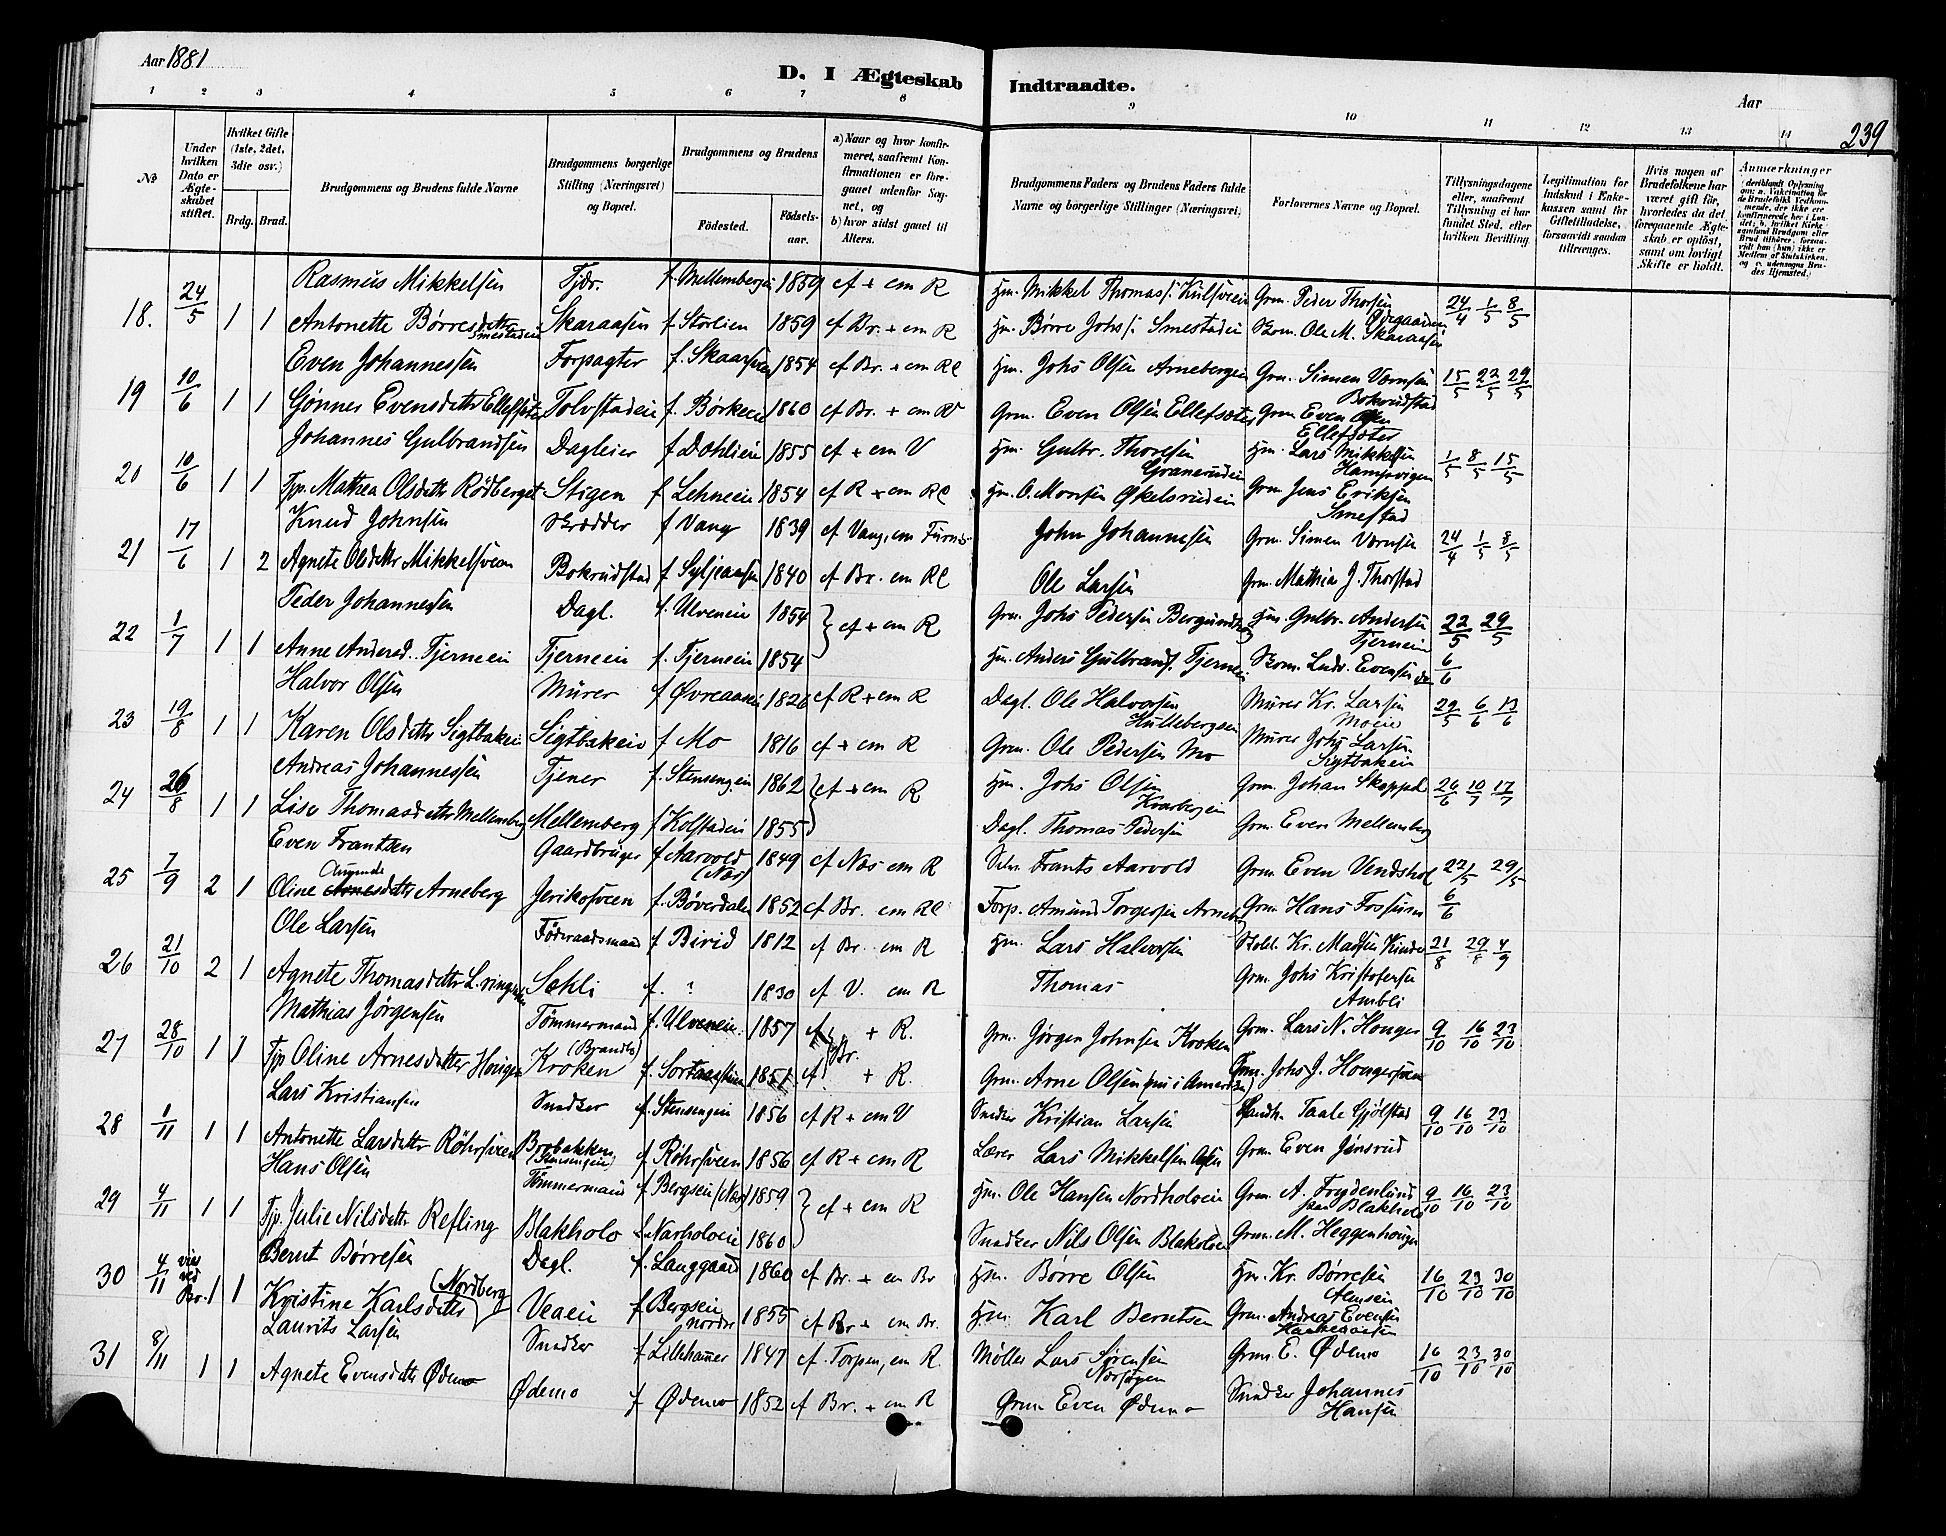 Aar 1881
D. I Ægteskab Indtraadte.
Aar
239
1 2 3 4 5 6 7 8 9 10 11 12 13 14
No
Under hvilken Dato er Ægteskabet stiftet.
Hvilket Gifte (1ste, 2det, 3die osv.)
Brdg. Brud.
Brudgommens og Brudens fulde Navne
Brudgommens borgerlige Stilling (Næringsvei) og Bopæl.
Brudgommens og Brudens
Fødested. Fødselsaar.
a) Naar og hvor konfirmeret, saafremt Konfirmationen er foregaaet udenfor Sognet, og
b) hvor sidst gaaet til Alters.
Brudgommens Faders og Brudens Faders fulde Navne og borgerlige Stillinger (Næringsvei)
Forlovernes Navne og Bopæl.
Tillysningsdagene eller, saafremt Tillysning ei har fundet Sted, efter hvilken Bevilling.
Legitimation for Indskud i Enkekassen samt for Giftetilladelse, forsaavidt saadan tiltrænges.
Hvis nogen af Brudefolkene har været gift før, hvorledes da det foregaaende Ægteskab er opløst, samt om lovligt Skifte er holdt.
Anmærkninger
18. 24/5 1 1 Rasmus Mikkelsen Tjdr. f. Mellembergei 1859 cf + em R Hm. Mikkel Thomass. Kulsveen Grm. Peder Thorsen Ødegaarden 24/4 1/5 8/5
Antonette Børresdatter Smestadeie Skaraasen f Storlien 1859 cf Br. + em R Hm. Børre Johs. Smestadei Skom. Ole M. Skaraasen
19 10/6 1 1 Even Johannessen Forpagter f. Skaarsveen 1854 cf Br. + em Rl Hm. Johs Olsen Arnebergei Grm. Simen Værnsen Bokrudstad 15/5 22/5 29/5
Gønner Evensdatter Ellefsæter Tolvstadeie f. Børkeeie 1860 cf Br. + em R Grm. Even Olsen Ellefsæter Grm Even Olsen Ellefsæter
20 10/6 1 1 Johannes Gulbrandsen Dagleier f Dæhlieie 1855 cf + em V Hm. Gulbr. Thoresen Graneruden Hm. Lars Mikkelsen 1/5 8/5 15/5
Tjp. Mathea Olsdatter Rødberget Stigen f Lehneeie 1854 cf R + em Rl Hm. O. Monsen Økelsrudein Grm Jens Eriksen Smestad
21 17/6 1 2 Knud Johnsen Skrædder f Vang 1839 cf Vang, em Furnes John Johannesen Grm. Simen Værnsen 24/4 1/5 8/5
Agnete Olsdatter Mikkelsveen Bokrudstad f Syljeaasen 1840 cf Br. em Rl Ole Larsen Grm. Mathia J. Thorstad
22 1/7 1 1 Peder Johannessen Dagl. f. Ulveneie 1854 cf + em R Grm. Johs Pedersen Hm. Gulbr. Andersen Tjerneie 22/5 29/5
Anne Andersd. Tjerneeie Tjerneeie f. Tjerneeie 1854 Hm. Anders Gulbrands. Tjerneei Skom. Ludv. Evensen do 6/6
23 19/8 1 1 Halvor Olsen Murer f Øvreaanei 1826 cf R + em R Dagl. Ole Halvorsen Kullebergeie Murer Kr. Larsen Moeie 29/5 6/6 13/6
Karen Olsdatter Sigtbakeie Sigtbakeie f Mo 1816 cf + em R Grm. Ole Pedersen Mo Murer Johs Larsen Sigtbakeie
24 26/8 1 1 Andreas Johannessen Tjener f. Stensengeie 1862 cf + em R Hm. Johs Olsen Kvarbergeie Grm. Johan Skeppel 26/6 10/7 17/7
Lise Thomasdatter Mellemberg Mellemberg f Kolstadeie 1855 Dagl. Thomas Pedersen Grm. Even Mellemberg
25 7/9 2 1 Even Frantzen Gaardbruger f Aarvold (Næs) 1849 cf Næs em R Selve. Frants Aarvold Grm Even Vendshol 22/5 29/5
Oline Amunds Arnesdatter Arneberg Jerikosveen f. Bøverdalen 1852 cf Br. em Rl Forp. Amund Torgersen Arneberg Grm. Hans Fossum 6/6
26 21/10 2 1 Ole Larsen Føderaadsmand f Birid 1812 cf Br. em R Hm. Lars Halvorsen Skoleh. Kr. Madsen 21/8 29/8 4/9
Agnete Thomasdatter Sæhli f. ? 1830 cf V. em R Thomas Grm. Johs Kristofersen Ambli
27 28/10 1 1 Mathias Jørgensen Tømmermand f. Ulveneie 1857 cf Br. + R. Grm. Jørgen Johnsen Kroken Grm. Lars N. Honger 9/10 16/10 23/10
Tjp Oline Arnesdatter Hovigen Kroken (Brandbo) f. 1851 cf + R. Grm. Arne Olsen (nu i Amerika) Grm. Johs J. Hongersveen
28 1/11 1 1 Lars Kristiansen Snedker f. Stensengeie 1856 cf R + em V Snedker Kristian Larsen Taale Gjølstad 9/10 16/10 23/10
Antonette Larsdatter Røhrsveen Brobakken (Stensengeie) f Røhrsveen 1856 cf R + em R Lærer Lars Mikkelsen Grm Even Jønsrud
29 4/11 1 1 Hans Olsen Tømmermand f Bergseie (Næs) 1859 cf + em R Hm. Ole Hansen Nordholveie Grm. A. Frydenlund paa Blakholo 9/10 16/10 23/10
Tjp. Julie Nilsdatter Refling Blakholo f. Narholveie 1860 Snedker Nils Olsen Blakoloei Grm. M. Heggenhougen
30 4/11 viet ved Br. 1 1 Bernt Børresen Dagl. f. Langgaard 1860 cf Br. + em Br Hm. Børre Olsen Hm. Kr. Børresen 16/10 23/10 30/10
Kristine Karlsdatter (Nordberg) Veaei f Bergseie nordre 1855 cf Br + em Br. Hm. Karl Berntsen Grm. Andreas Evensen
31 8/11 1 1 Laurits Larsen Snedker f Lillehamer 1847 cf. Torpen, em R. Møller Lars Sørensen Grm E. Ødemo 16/10 23/10 30/10
Agnete Evensdatter Ødemo Ødemo f Ødemo 1852 cf Br. + em R Grm Even Ødemo Snedker Johannes Hansen